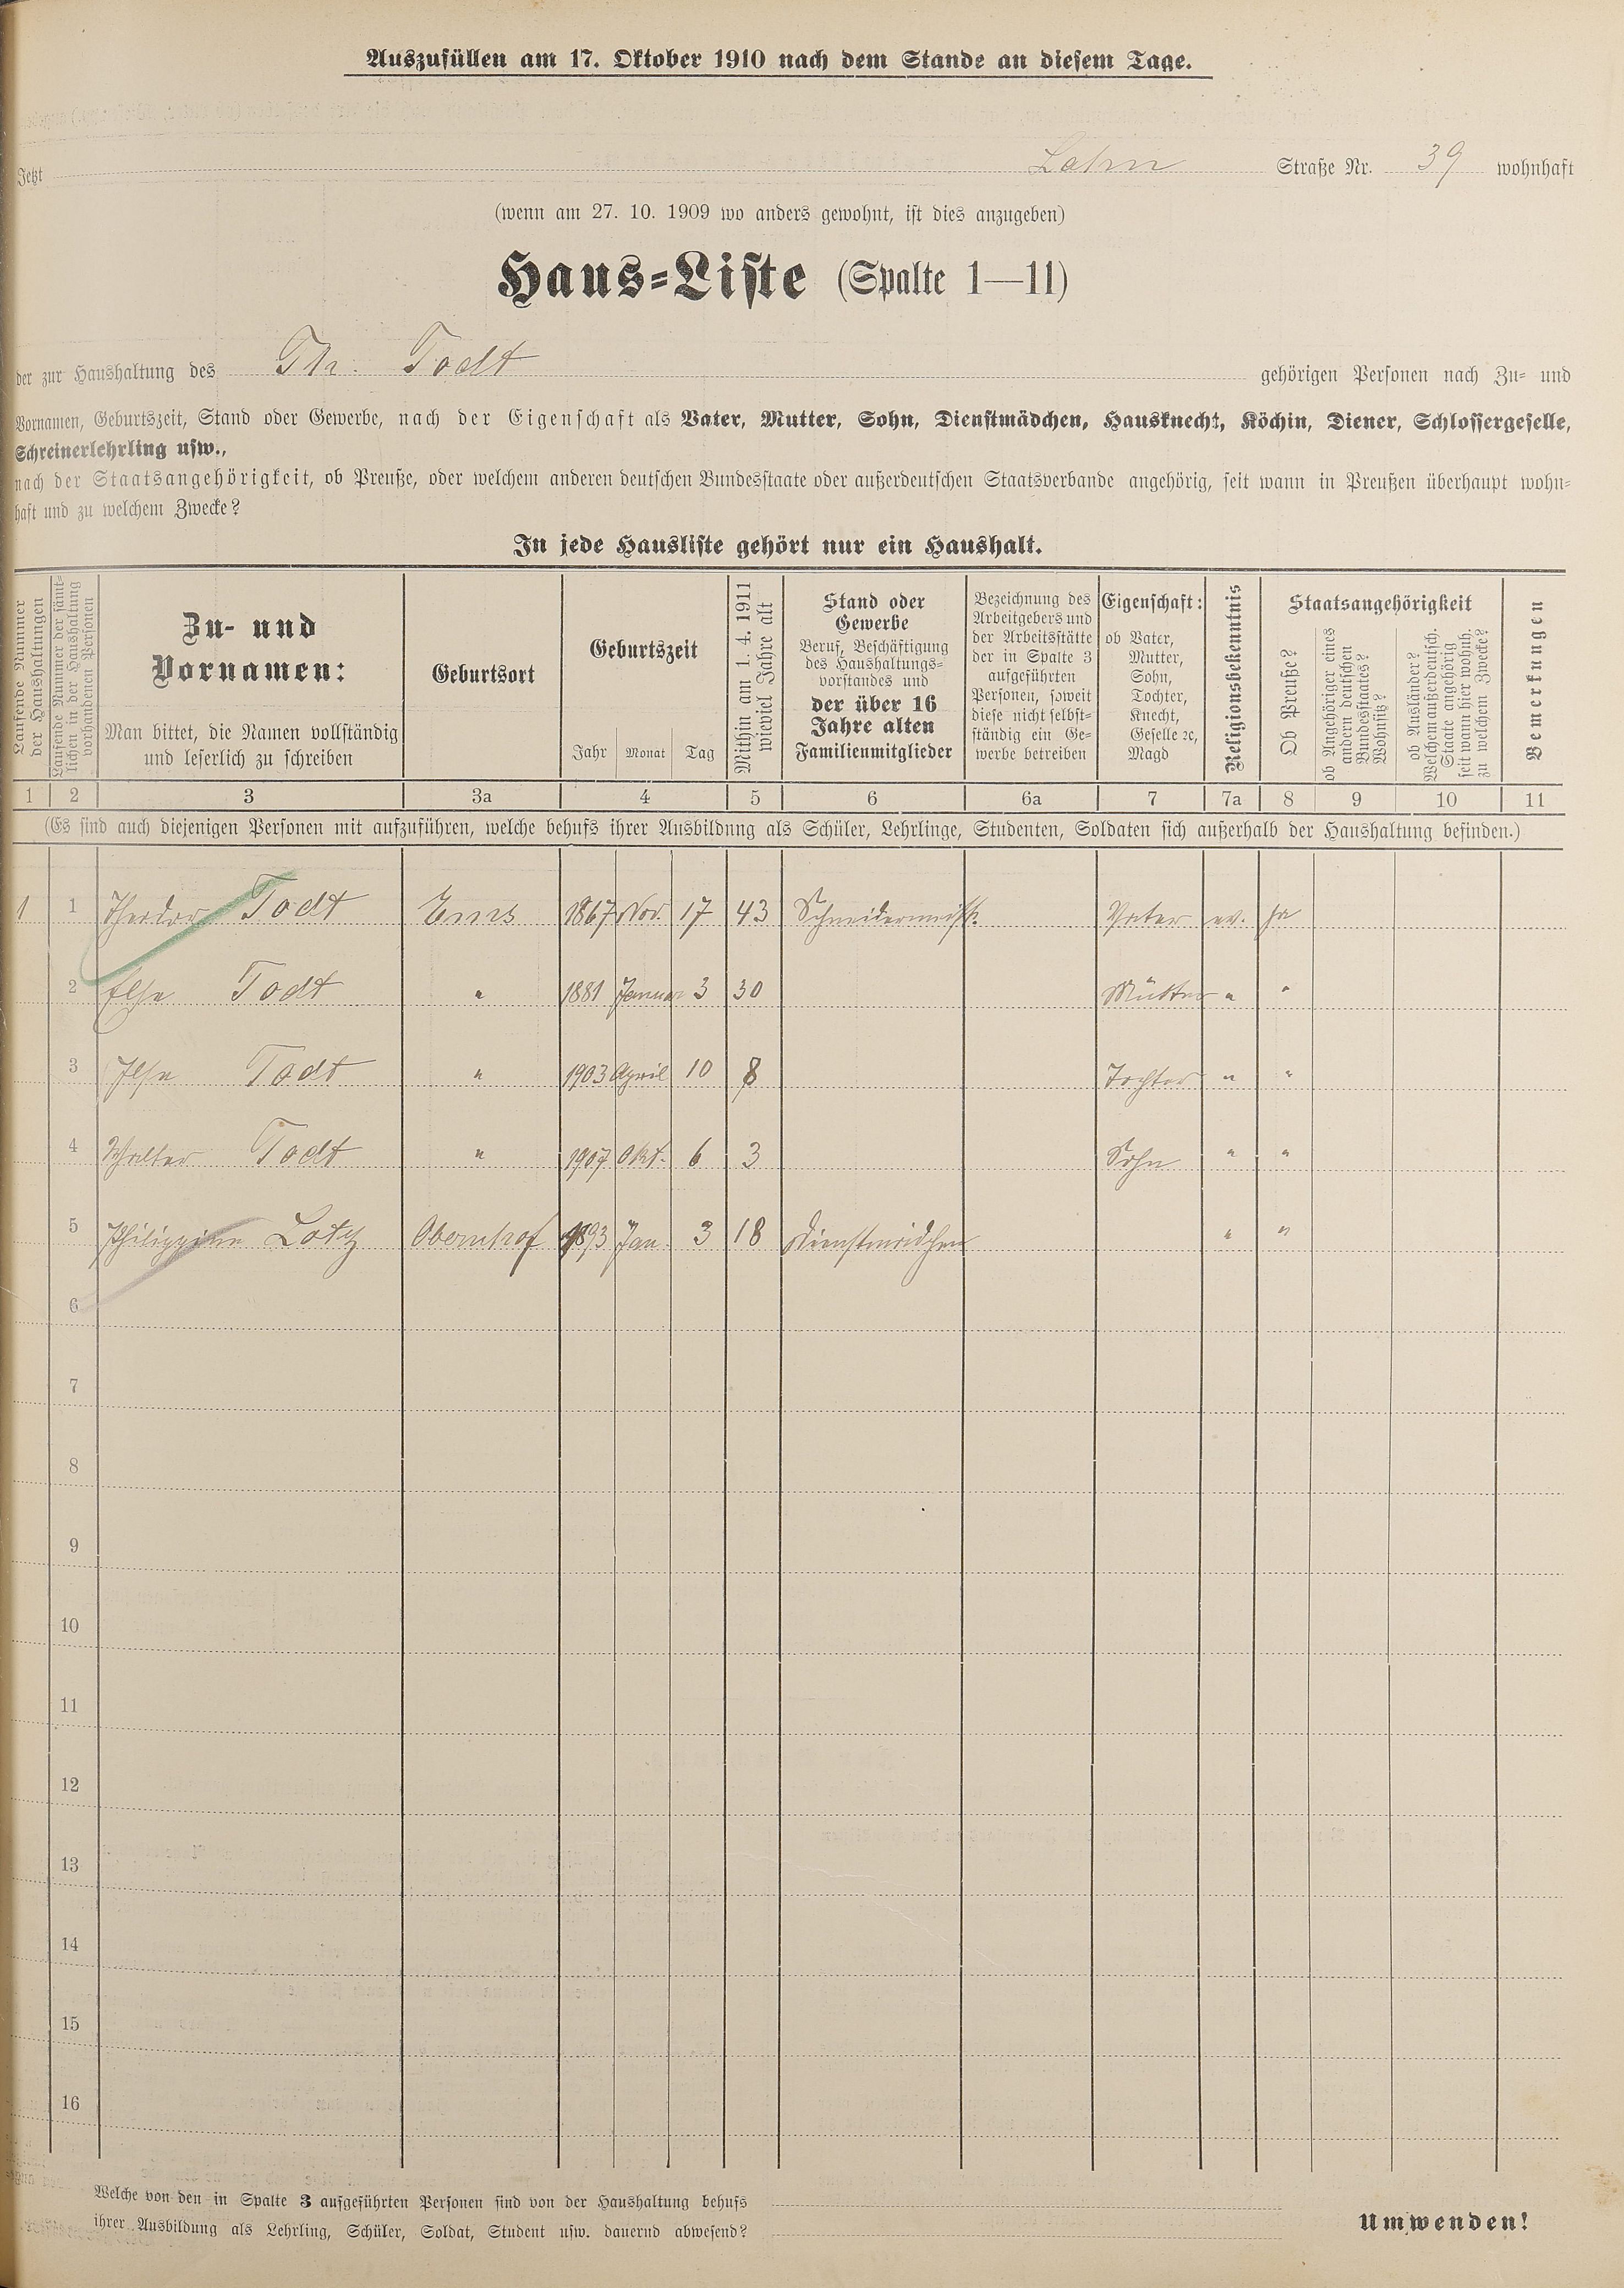 Auszufüllen am 17. Oktober 1910 nach dem Stande an diesem Tage.
Jetzt Lahn Straße Nr. 39 wohnhaft
(wenn am 27. 10. 1909 wo anders gewohnt, ist dies anzugeben)
Haus-Liste (Spalte 1—11)
der zur Haushaltung des Th. Todt gehörigen Personen nach Zu- und
Vornamen, Geburtszeit, Stand oder Gewerbe, nach der Eigenschaft als Vater, Mutter, Sohn, Dienstmädchen, Hausknecht, Köchin, Diener, Schlossergeselle,
Schreinerlehrling usw.,
nach der Staatsangehörigkeit, ob Preuße, oder welchem anderen deutschen Bundesstaate oder außerdeutschen Staatsverbande angehörig, seit wann in Preußen überhaupt wohn-
haft und zu welchem Zwecke?
In jede Hausliste gehört nur ein Haushalt.
Laufende Nummer
der Haushaltungen
Laufende Nummer der sämt-
lichen in der Haushaltung
vorhandenen Personen
Zu- und
Vornamen:
Man bittet, die Namen vollständig
und leserlich zu schreiben
Geburtsort
Geburtszeit
Jahr Monat Tag
Mithin am 1. 4. 1911
wieviel Jahre alt
Stand oder
Gewerbe
Beruf, Beschäftigung
des Haushaltungs-
vorstandes und
der über 16
Jahre alten
Familienmitglieder
Bezeichnung des
Arbeitgebers und
der Arbeitsstätte
der in Spalte 3
aufgeführten
Personen, soweit
diese nicht selbst-
ständig ein Ge-
werbe betreiben
Eigenschaft:
ob Vater,
Mutter,
Sohn,
Tochter,
Knecht,
Geselle ꝛc,
Magd
Religionsbekenntnis
Staatsangehörigkeit
Ob Preuße?
ob Angehöriger eines
andern deutschen
Bundesstaates?
Wohnsitz?
ob Ausländer?
Welchem außerdeutsch.
Staate angehörig
seit wann hier wohnh.
zu welchem Zwecke?
Bemerkungen
1 2 3 3a 4 5 6 6a 7 7a 8 9 10 11
(Es sind auch diejenigen Personen mit aufzuführen, welche behufs ihrer Ausbildung als Schüler, Lehrlinge, Studenten, Soldaten sich außerhalb der Haushaltung befinden.)
1 1 Theodor Todt Ems 1867 Nov. 17 43 Schneidermstr. Vater ev. ja
2 Else Todt " 1881 Januar 3 30 Mutter " "
3 Ilse Todt " 1903 April 10 8 Tochter " "
4 Walter Todt " 1907 Okt. 6 3 Sohn " "
5 Philippine Lotz Obernhof 1893 Jan. 3 18 Dienstmädchen " "
6
7
8
9
10
11
12
13
14
15
16
Welche von den in Spalte 3 aufgeführten Personen sind von der Haushaltung behufs
ihrer Ausbildung als Lehrling, Schüler, Soldat, Student usw. dauernd abwesend?
Umwenden!